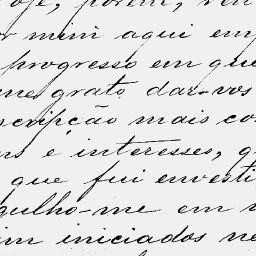 oje, porém, ven
r mim aqui emp
progresso em que
me grato dar-vos
scripção mais co
ns e interesses, q
que fui envesti
gulho-me em
im iniciados ne